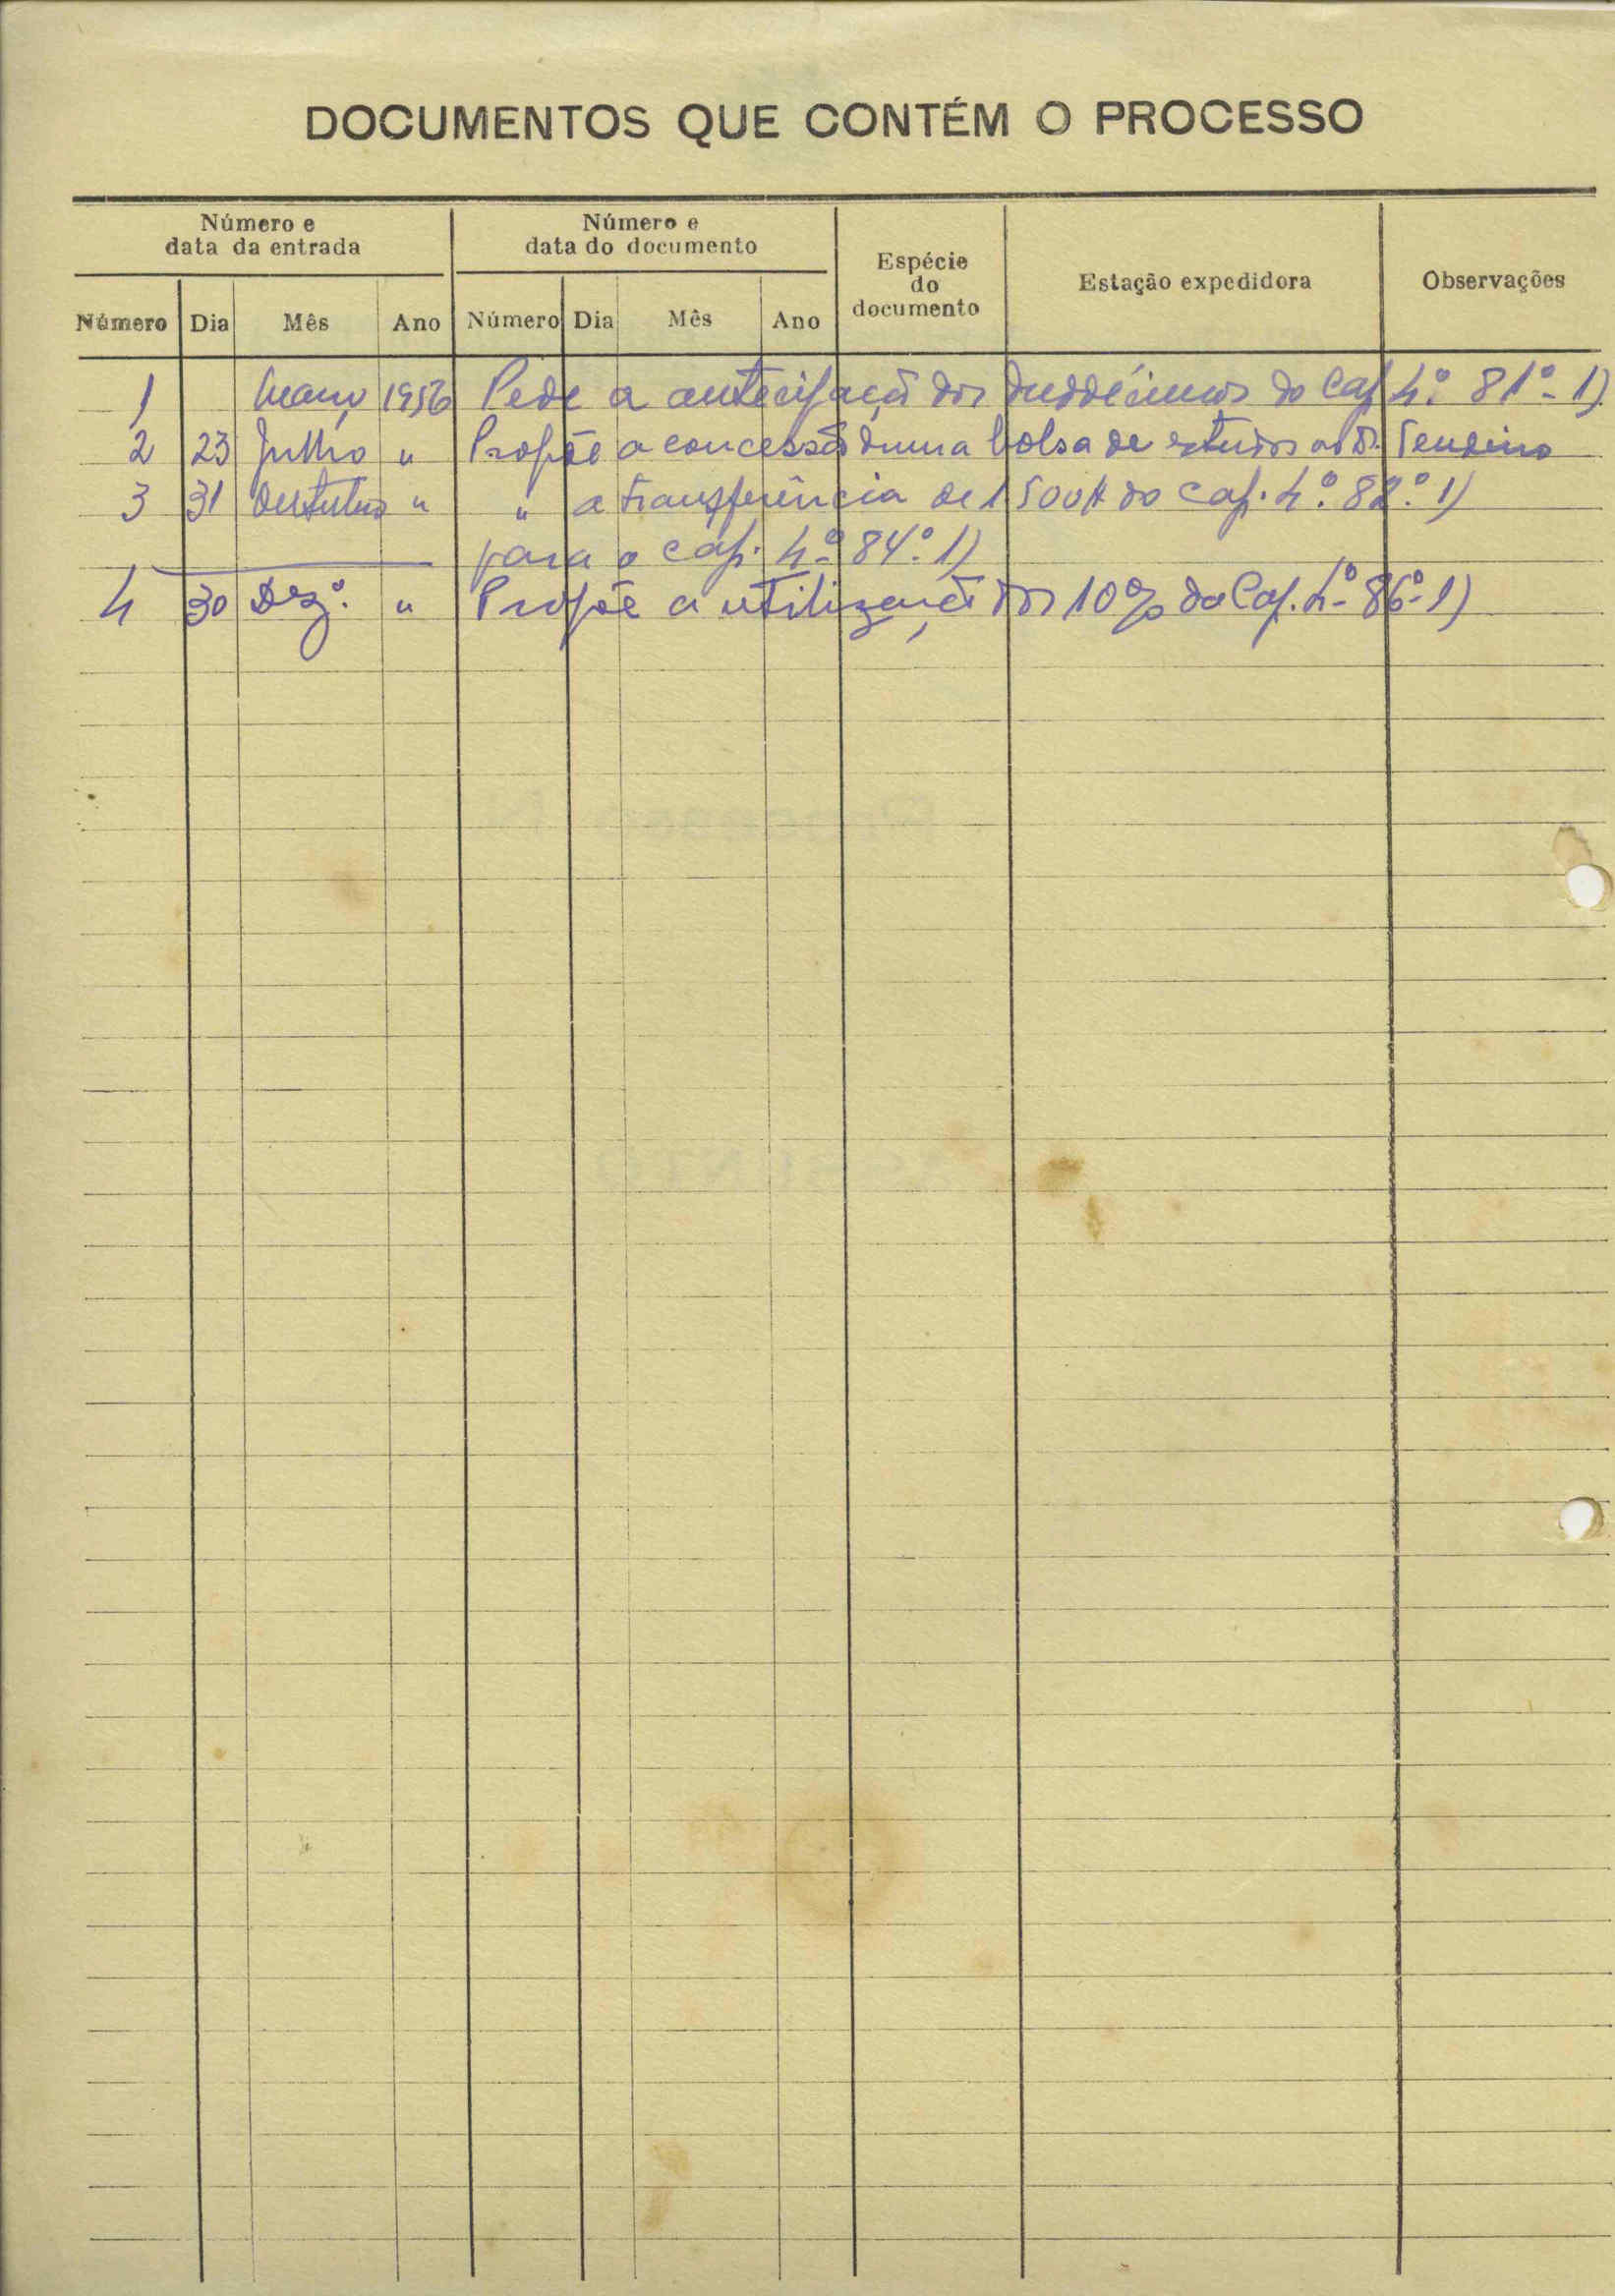 DOCUMENTOS QUE CONTÉM O PROCESSO
Número e
data da entrada
Número e
data do documento
Espécie
do
documento
Estação expedidora
Observações
Número Dia Mês Ano Número Dia Mês Ano
1 Março 1956 Pede a antecipação dos duodécimos do Cap. 4.º 81.º - 1)
2 23 Julho " Propõe a concessão duma bolsa de estudos ao Dr.
3 31 Outubro " " a transferência de 1500$ do cap. 4.º 82.º 1)
para o cap. 4.º 84.º 1)
4 30 Dez.º " Propõe a utilização dos 10% do Cap. 4.º 86.º 1)